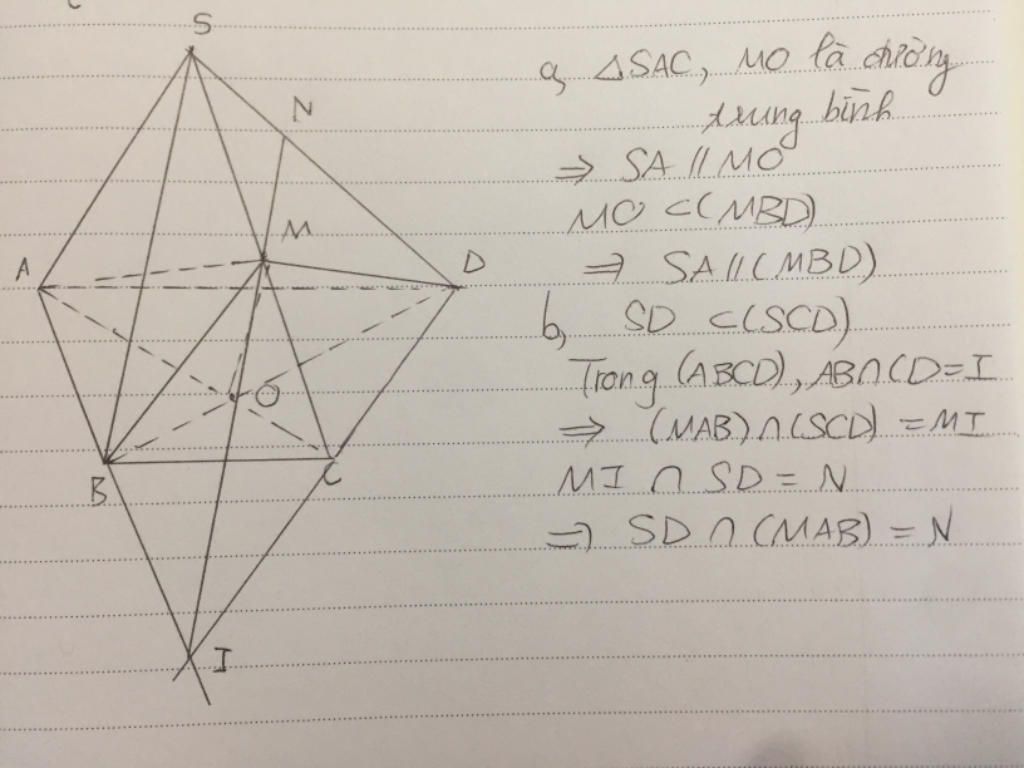 S
N
M
A
D
O
B
C
I
a, △SAC, MO là đường
trung bình
⇒ SA // MO
MO ⊂ (MBD)
⇒ SA // (MBD)
b, SD ⊂ (SCD)
Trong (ABCD), AB ∩ CD = I
⇒ (MAB) ∩ (SCD) = MI
MI ∩ SD = N
⇒ SD ∩ (MAB) = N